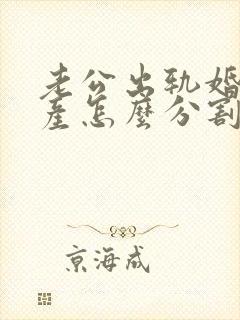 老公出轨婚
產怎麼分割
京海成